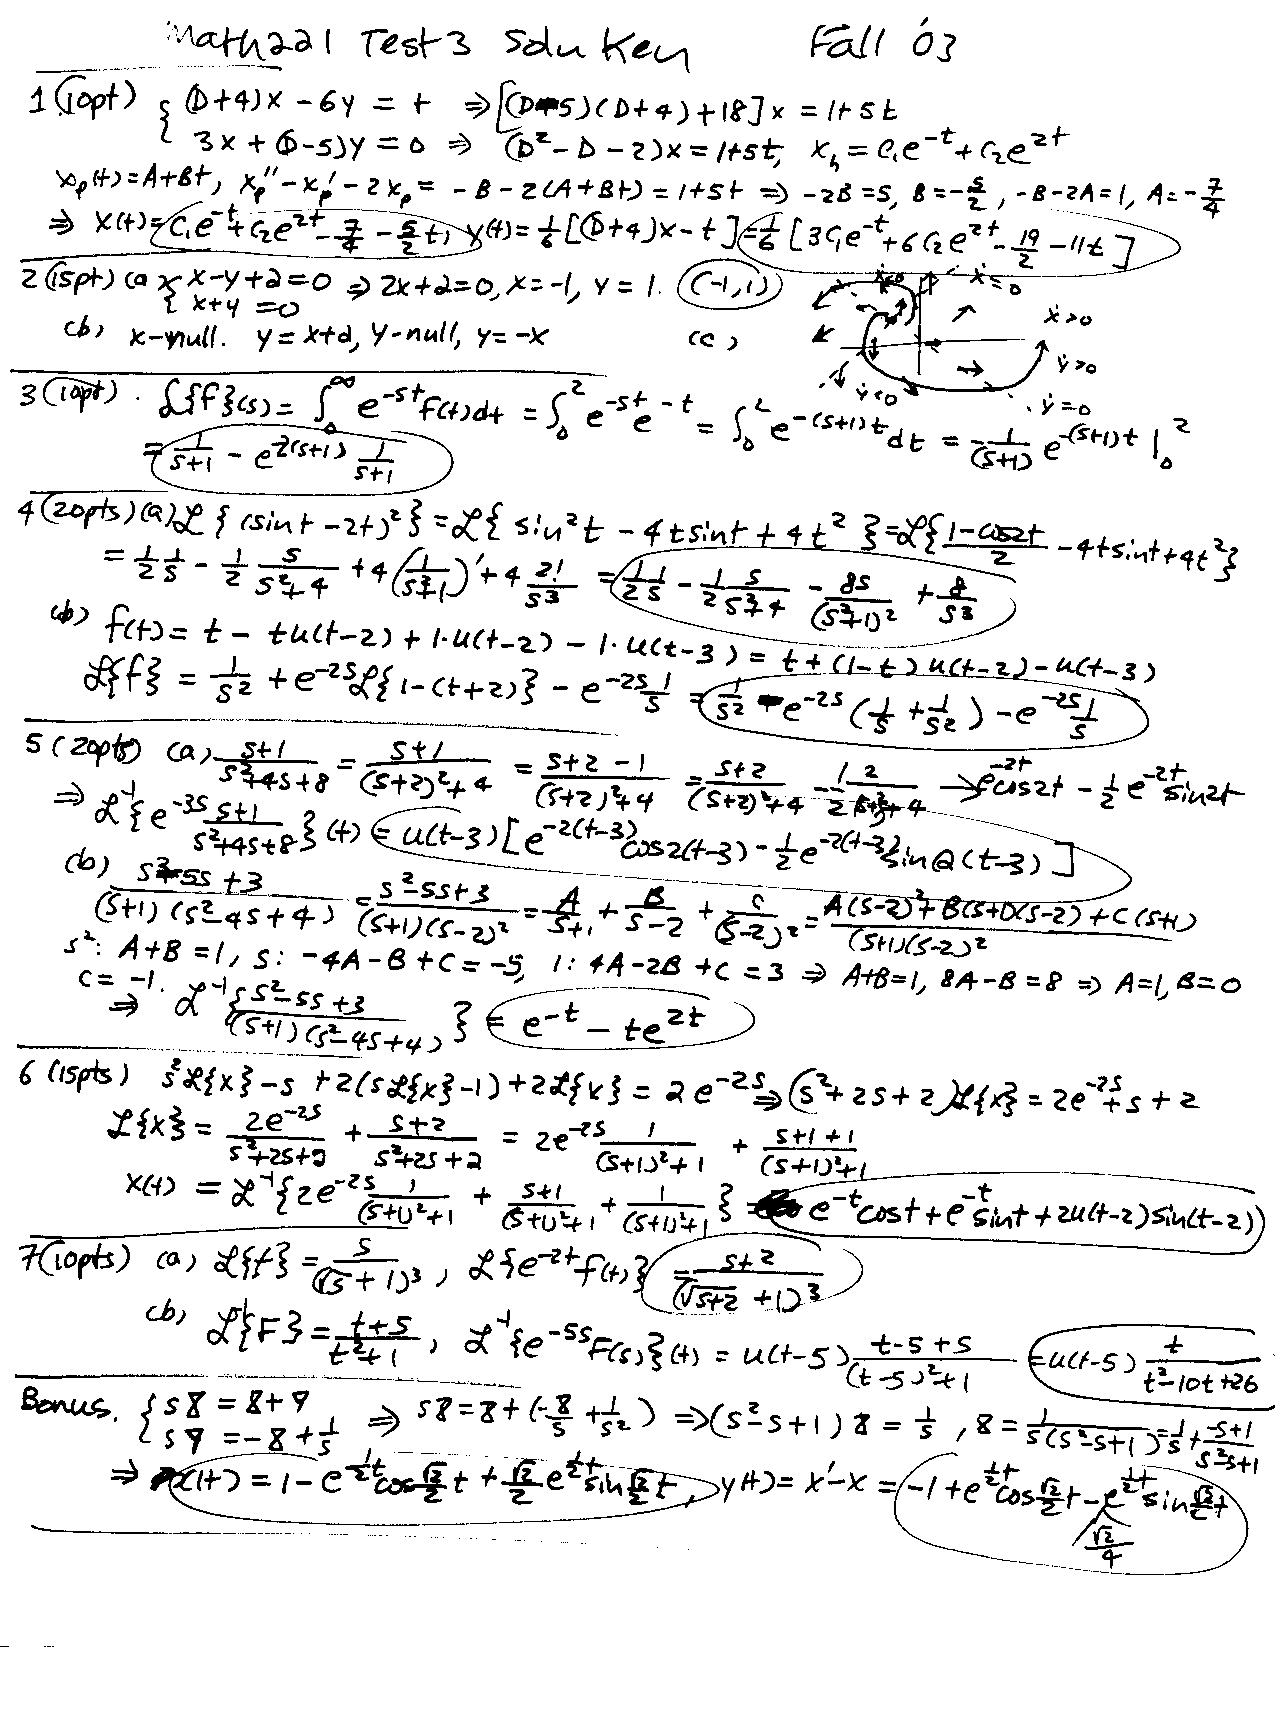 Math221 Test3 Soln Key Fall '03
1 (10pt) { (D+4)x - 6y = t ⇒ [(D-5)(D+4)+18]x = 1+5t
3x + (D-5)y = 0 ⇒ (D²-D-2)x = 1+5t, x_h = c₁e^{-t} + c₂e^{2t}
x_p(t) = A+Bt, x_p'' - x_p' - 2x_p = -B-2(A+Bt) = 1+5t ⇒ -2B=5, B=-5/2, -B-2A=1, A=-7/4
⇒ x(t) = c₁e^{-t} + c₂e^{2t} - 7/4 - 5/2 t, y(t) = 1/6[(D+4)x - t] = 1/6[3c₁e^{-t} + 6c₂e^{2t} - 19/2 - 11t]
2 (15pt) (a) { x-y+2=0 ⇒ 2x+2=0, x=-1, y=1. (-1,1)
x+y =0
(b) x-null. y=x+2, y-null, y=-x (c)
ẋ<0 ẋ=0
ẋ>0
ẏ>0
ẏ<0 ẏ=0
3 (10pt). ℒ{f}(s) = ∫₀^∞ e^{-st}f(t)dt = ∫₀² e^{-st}e^{-t} = ∫₀² e^{-(s+1)t}dt = -1/(s+1) e^{-(s+1)t} |₀²
= 1/(s+1) - e^{2(s+1)} 1/(s+1)
4 (20pts) (a) ℒ{(sint-2t)²} = ℒ{sin²t - 4tsint + 4t²} = ℒ{(1-cos2t)/2 - 4tsint+4t²}
= 1/2 1/s - 1/2 s/(s²+4) + 4(1/(s²+1))' + 4 2!/s³ = 1/2 1/s - 1/2 s/(s²+4) - 8s/(s²+1)² + 8/s³
(b) f(t) = t - tu(t-2) + 1·u(t-2) - 1·u(t-3) = t+(1-t)u(t-2)-u(t-3)
ℒ{f} = 1/s² + e^{-2s}ℒ{1-(t+2)} - e^{-2s} 1/s = 1/s² - e^{-2s}(1/s + 1/s²) - e^{-2s} 1/s
5 (20pts) (a) (s+1)/(s²+4s+8) = (s+1)/((s+2)²+4) = (s+2-1)/((s+2)²+4) = (s+2)/((s+2)²+4) - 1/2 2/((s+2)²+4) → e^{-2t}cos2t - 1/2 e^{-2t}sin2t
⇒ ℒ⁻¹{e^{-3s} (s+1)/(s²+4s+8)}(t) = u(t-3)[e^{-2(t-3)}cos2(t-3) - 1/2 e^{-2(t-3)}sin2(t-3)]
(b) (s²-5s+3)/((s+1)(s²-4s+4)) = (s²-5s+3)/((s+1)(s-2)²) = A/(s+1) + B/(s-2) + C/(s-2)² = (A(s-2)²+B(s+1)(s-2)+C(s+1))/((s+1)(s-2)²)
s²: A+B=1, s: -4A-B+C=-5, 1: 4A-2B+C=3 ⇒ A+B=1, 8A-B=8 ⇒ A=1, B=0
C=-1.
⇒ ℒ⁻¹{(s²-5s+3)/((s+1)(s²-4s+4))} = e^{-t} - te^{2t}
6 (15pts) s²ℒ{x}-s+2(sℒ{x}-1)+2ℒ{x} = 2e^{-2s} ⇒ (s²+2s+2)ℒ{x} = 2e^{-2s}+s+2
ℒ{x} = 2e^{-2s}/(s²+2s+2) + (s+2)/(s²+2s+2) = 2e^{-2s} 1/((s+1)²+1) + (s+1+1)/((s+1)²+1)
x(t) = ℒ⁻¹{2e^{-2s} 1/((s+1)²+1) + (s+1)/((s+1)²+1) + 1/((s+1)²+1)} = e^{-t}cost+e^{-t}sint+2u(t-2)sin(t-2))
7 (10pts) (a) ℒ{f} = s/(√s+1)³, ℒ{e^{-2t}f(t)} = (s+2)/(√(s+2)+1)³
(b) ℒ⁻¹{F} = (t+5)/(t²+1), ℒ⁻¹{e^{-5s}F(s)}(t) = u(t-5) (t-5+5)/((t-5)²+1) = u(t-5) t/(t²-10t+26)
Bonus. { s8 = 8+9 ⇒ s8 = 8+(-8/s+1/s²) ⇒ (s²-s+1)8 = 1/s, 8 = 1/(s(s²-s+1)) = 1/s + (-s+1)/(s²-s+1)
s9 = -8+1/s
⇒ x(t) = 1 - e^{½t}cos(√2/2)t + (√2/2)e^{½t}sin(√2/2)t, y(t) = x'-x = -1+e^{½t}cos(√2/2)t - e^{½t}sin(√2/2)t
√2/4